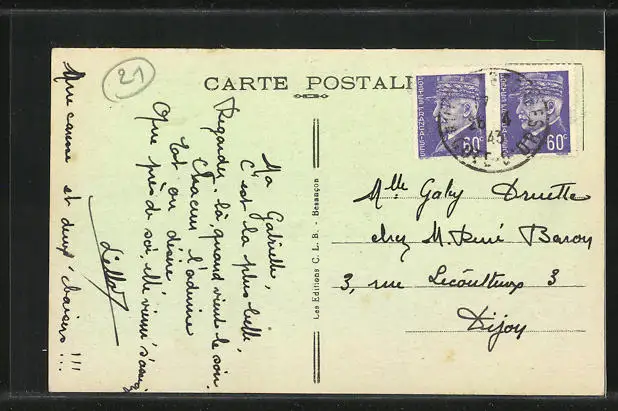 21
CARTE POSTALE
Ma Gabrielle,
C'est la plus belle,
Regardez-là quand vient le soir
Chacun l'admire
Et on désire
Que près de soi, elle vienne s'asseoir
Une canne et deux baisers !!!
Les Editions C. L. B. - Besançon
60c
60c
43
Mlle Gaby Druette
chez M. René Baron
3, rue Lecoulteux 3
Dijon